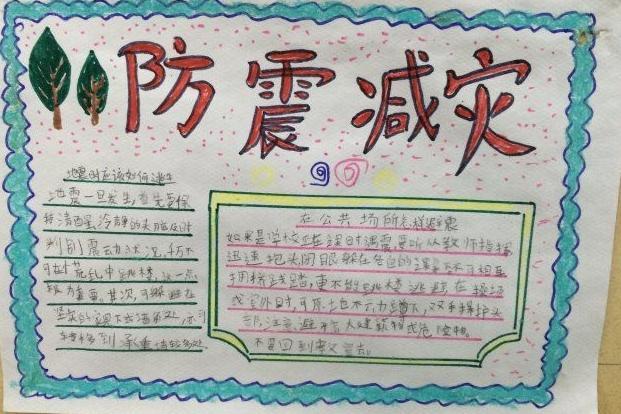 防震减灾
地震时应该如何逃生
地震一旦发生,首先要保
持清醒冷静的头脑及时
判别震动状况,千万不
可在慌乱中跳楼,这一点
极为重要。其次,可躲避在
坚实的家具下或墙角处,亦可
转移到承重墙较多处
在公共场所怎样避震
如果是学校正在上课时遇震要听从教师指挥
迅速抱头闭眼躲在各自的课桌下不可相互
拥挤践踏,更不能跳楼逃避在操场
或室外时,可原地不动蹲下,双手保护头
部,注意避开高大建筑物或危险物。
不要回到教室去。